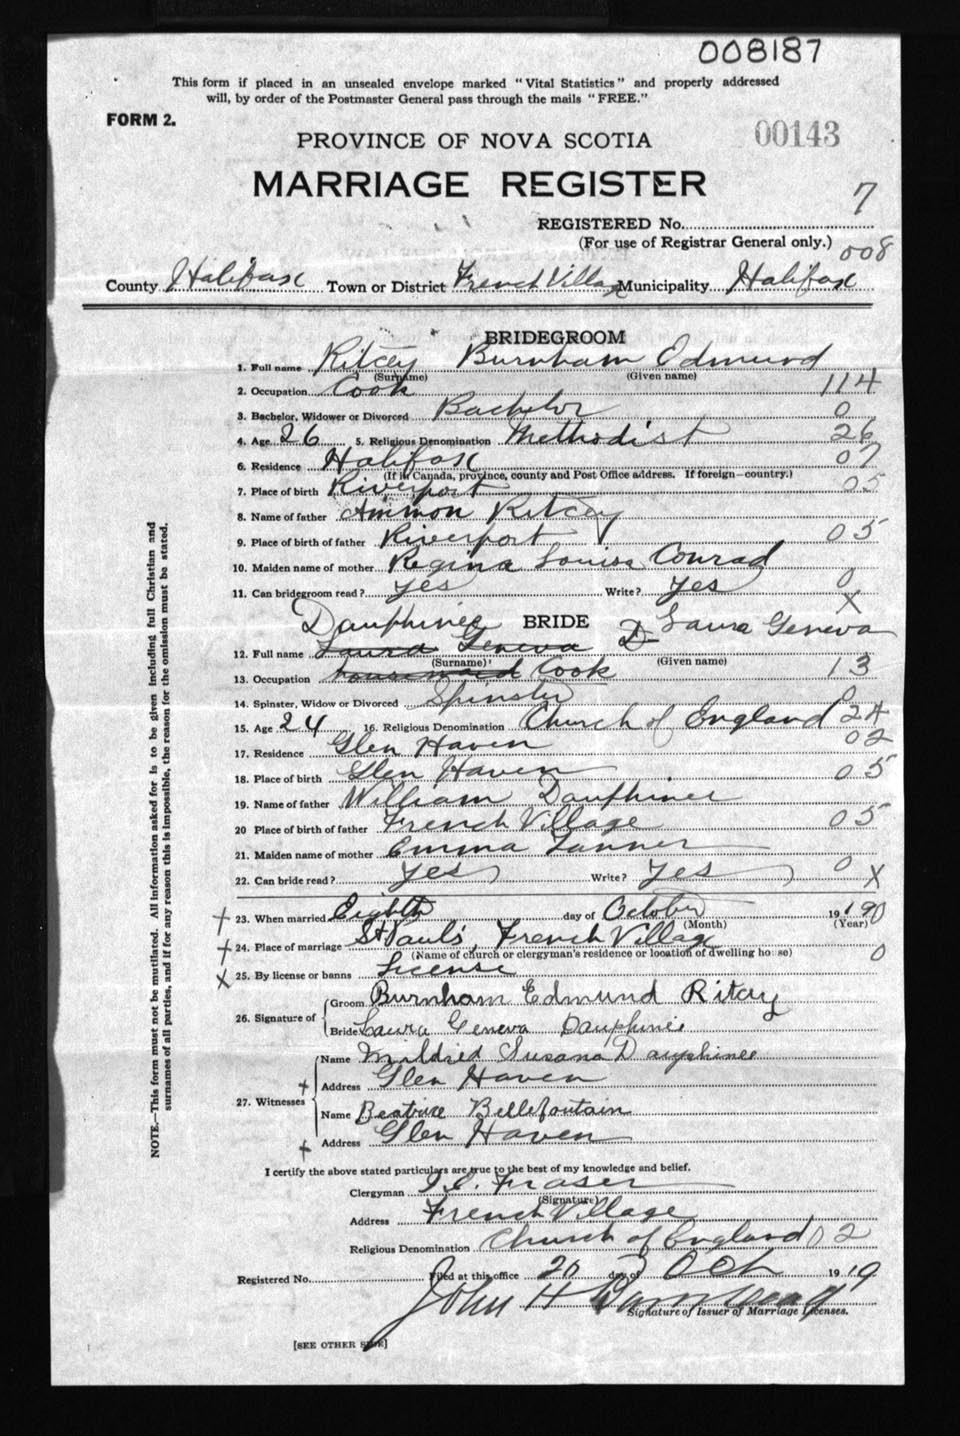 008187
This form if placed in an unsealed envelope marked "Vital Statistics" and properly addressed
will, by order of the Postmaster General pass through the mails "FREE."
FORM 2.
PROVINCE OF NOVA SCOTIA 00143
MARRIAGE REGISTER
7
REGISTERED No.
(For use of Registrar General only.)
008
County Halifax Town or District French Village Municipality Halifax
BRIDEGROOM
1. Full name Ritcey Burnham Edmund
(Surname) (Given name)
2. Occupation Cook 114
3. Bachelor, Widower or Divorced Bachelor 0
4. Age 26 5. Religious Denomination Methodist 26
6. Residence Halifax 07
(If in Canada, province, county and Post Office address. If foreign—country.)
7. Place of birth Riverport 05
8. Name of father Ammon Ritcey
9. Place of birth of father Riverport 05
10. Maiden name of mother Regina Louise Conrad
11. Can bridegroom read? Yes Write? Yes 0
X
Dauphinee BRIDE D Laura Geneva
12. Full name Laura Geneva
(Surname) (Given name)
13. Occupation housemaid Cook 13
14. Spinster, Widow or Divorced Spinster 0
15. Age 24 16. Religious Denomination Church of England 24
17. Residence Glen Haven 02
18. Place of birth Glen Haven 05
19. Name of father William Dauphinee
20 Place of birth of father French Village 05
21. Maiden name of mother Emma Tanner
22. Can bride read? Yes Write? Yes 0
X
23. When married Eighth day of October 1919 0
(Month) (Year)
24. Place of marriage St Paul's, French Village
(Name of church or clergyman's residence or location of dwelling house) 0
X 25. By license or banns License
26. Signature of
Groom Burnham Edmund Ritcey
Bride Laura Geneva Dauphinee
27. Witnesses
Name Mildred Susana Dauphinee
Address Glen Haven
Name Beatrice Bellefontain
Address Glen Haven
I certify the above stated particulars are true to the best of my knowledge and belief.
Clergyman Fraser
(Signature)
Address French Village
Religious Denomination Church of England 02
Registered No. Filed at this office 20 day of Oct 1919
John H
Signature of Issuer of Marriage Licenses.
[SEE OTHER SIDE]
NOTE.—This form must not be mutilated. All information asked for is to be given including full Christian and
surnames of all parties, and if for any reason this is impossible, the reason for the omission must be stated.